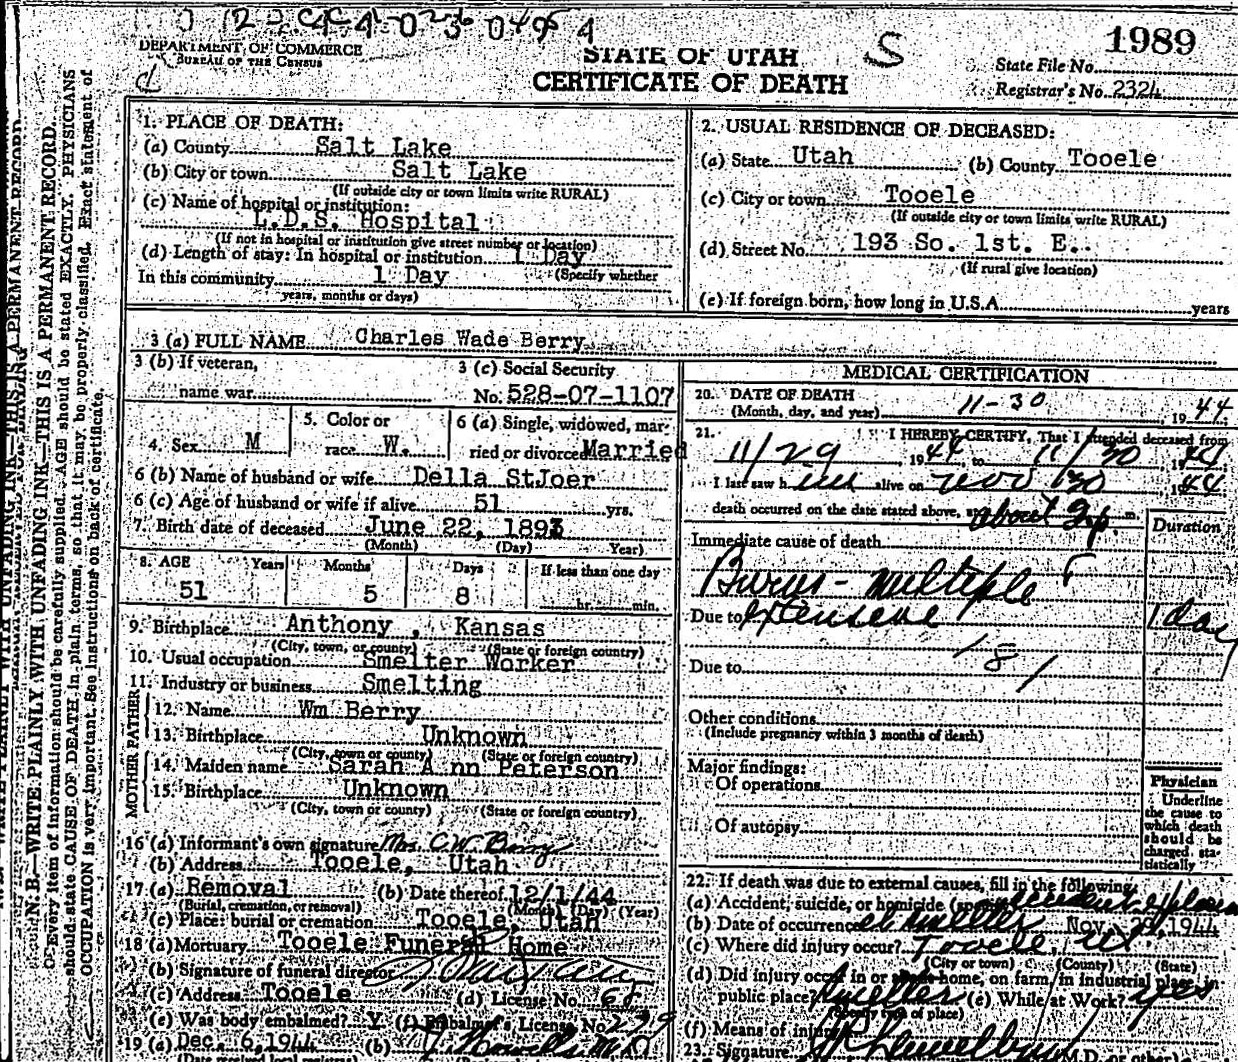 DEPARTMENT OF COMMERCE
BUREAU OF THE CENSUS
STATE OF UTAH
CERTIFICATE OF DEATH
S
1989
State File No.
Registrar's No. 2324
N. B.—WRITE PLAINLY WITH UNFADING INK—THIS IS A PERMANENT RECORD.
Every item of information should be carefully supplied. AGE should be stated EXACTLY. PHYSICIANS
should state CAUSE OF DEATH in plain terms, so that it may be properly classified. Exact statement of
OCCUPATION is very important. See instructions on back of certificate.
1. PLACE OF DEATH:
(a) County Salt Lake
(b) City or town Salt Lake
(If outside city or town limits write RURAL)
(c) Name of hospital or institution:
L.D.S. Hospital
(If not in hospital or institution give street number or location)
(d) Length of stay: In hospital or institution 1 Day
In this community 1 Day (Specify whether
years, months or days)
2. USUAL RESIDENCE OF DECEASED:
(a) State Utah (b) County Tooele
(c) City or town Tooele
(If outside city or town limits write RURAL)
(d) Street No. 193 So. 1st. E.
(If rural give location)
(e) If foreign born, how long in U.S.A. years
3 (a) FULL NAME Charles Wade Berry
3 (b) If veteran,
name war
3 (c) Social Security
No. 528-07-1107
4. Sex M
5. Color or
race W.
6 (a) Single, widowed, mar-
ried or divorced Married
6 (b) Name of husband or wife Della StJoer
6 (c) Age of husband or wife if alive 51 yrs.
7. Birth date of deceased June 22, 1893
(Month) (Day) Year)
8. AGE Years Months Days If less than one day
51 5 8 hr. min.
9. Birthplace Anthony, Kansas
(City, town, or county) (State or foreign country)
10. Usual occupation Smelter Worker
11. Industry or business Smelting
FATHER
12. Name Wm Berry
13. Birthplace Unknown
(City, town or county) (State or foreign country)
MOTHER
14. Maiden name Sarah A nn Peterson
15. Birthplace Unknown
(City, town or county) (State or foreign country)
16 (a) Informant's own signature Mrs. C.W. Berry
(b) Address Tooele, Utah
17 (a) Removal (b) Date thereof 12/1/44
(Burial, cremation, or removal) (Month) (Day) (Year)
(c) Place: burial or cremation Tooele, Utah
18 (a) Mortuary Tooele Funeral Home
(b) Signature of funeral director
(c) Address Tooele (d) License No. 68
(e) Was body embalmed? Y (f) Embalmer's License No. 229
19 (a) Dec. 6, 1944 (b)
MEDICAL CERTIFICATION
20. DATE OF DEATH
(Month, day, and year) 11-30 1944
21. I HEREBY CERTIFY, That I attended deceased from
11/29 1944 to 11/30 1944
I last saw him alive on Nov 30 1944
death occurred on the date stated above, at about 2 p. m.
Duration
Immediate cause of death
Burns - multiple
Due to extensive 1 day
181
Due to
Other conditions
(Include pregnancy within 3 months of death)
Major findings:
Of operations
Of autopsy
Physician
Underline
the cause to
which death
should be
charged, sta-
tistically
22. If death was due to external causes, fill in the following:
(a) Accident, suicide, or homicide (specify) accident explosion
(b) Date of occurrence at smelter Nov. 1944
(c) Where did injury occur? Tooele, Ut
(City or town) (County) (State)
(d) Did injury occur in or about home, on farm, in industrial place, in
public place? Smelter (e) While at Work? yes
(Specify type of place)
(f) Means of injury
23. Signature